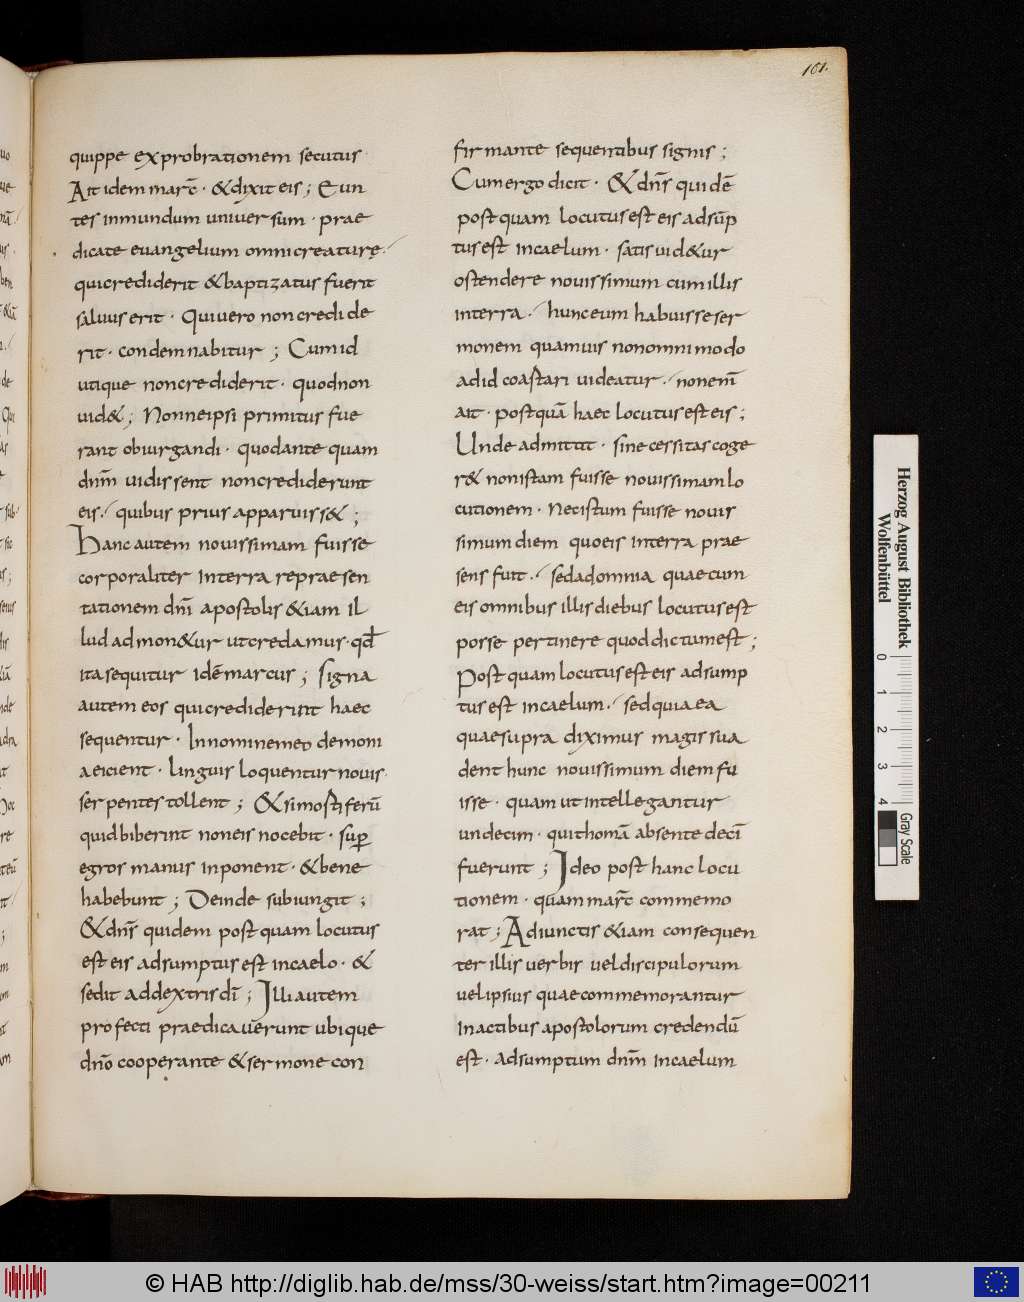 161.
quippe exprobrationem secutus
Ait idem marc̄ · & dixit eis ; Eun
tes in mundum universum · prae
dicate euangelium omni creaturę ·
qui crediderit & baptizatus fuerit
saluus erit · Qui uero non credide
rit · condemnabitur ; Cum id
utique non crediderit · quod non
uid& ; Nonne ipsi primitus fue
rant obiurgandi · quod antequam
dn̄m uidissent non crediderunt
eis · quibus prius apparuiss& ;
Hanc autem nouissimam fuisse
corporaliter in terra repraesen
tationem dn̄i apostolis &iam il
lud admon&ur ut credamus · qđ
ita sequitur idē marcus ; Signa
autem eos qui crediderint haec
sequentur · In nomine meo demoni
a eicient · linguis loquentur nouis ·
serpentes tollent ; & si mostiferū
quid biberint non eis nocebit · sup̄
egros manus inponent · & bene
habebunt ; Deinde subiungit ;
& dn̄s quidem postquam locutus
est eis adsumptus est in caelo · &
sedit ad dextris dī ; Illi autem
profecti praedicauerunt ubique
dn̄o cooperante & sermone con
firmante sequentibus signis ;
Cum ergo dicit · & dn̄s quidē
postquam locutus est eis adsūp
tus est in caelum · satis uid&ur
ostendere nouissimum cum illis
in terra · hunc eum habuisse ser
monem quamuis non omnimodo
ad id coastari uideatur · non enī
ait · postquā haec locutus est eis ;
Unde admittit · sine cessitas coge
r& non istam fuisse nouissimam lo
cutionem · Nec istum fuisse nouis
simum diem quo eis in terra prae
sens fuit · sed ad omnia quae cum
eis omnibus illis diebus locutus est
posse pertinere quod dictum est ;
Postquam locutus est eis adsump
tus est in caelum · sed quia ea
quae supra diximus magis sua
dent hunc nouissimum diem fu
isse · quam ut intellegantur
undecim · qui thomā absente decī
fuerunt ; Ideo post hanc locu
tionem · quam marc̄ commemo
rat ; Adiunctis &iam consequen
ter illis uerbis uel discipulorum
uel ipsius quae commemorantur
in actibus apostolorum credendū
est · adsumptum dn̄m in caelum
Herzog August Bibliothek
Wolfenbüttel
0 1 2 3 4
Gray Scale
© HAB http://diglib.hab.de/mss/30-weiss/start.htm?image=00211